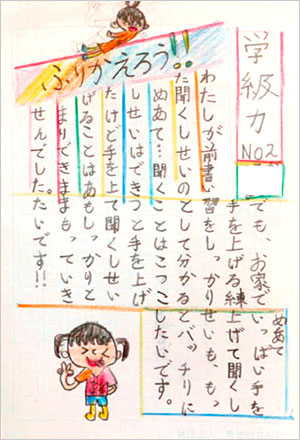 学級力 NO2
ふりかえろう!!
でも、お家でいっぱい手を
めあて
手を上げる練上げて聞くし
わたしが前書い習をしっかりせいも、もっ
た聞くしせいのとして分かるとバッチリに
めあて…聞くことはこっこしたいです。
しせいはできっと手を上げ
たけど手を上て聞くしせい
げることはあもしっかりと
まりできままもっていき
せんでした。たいです!!